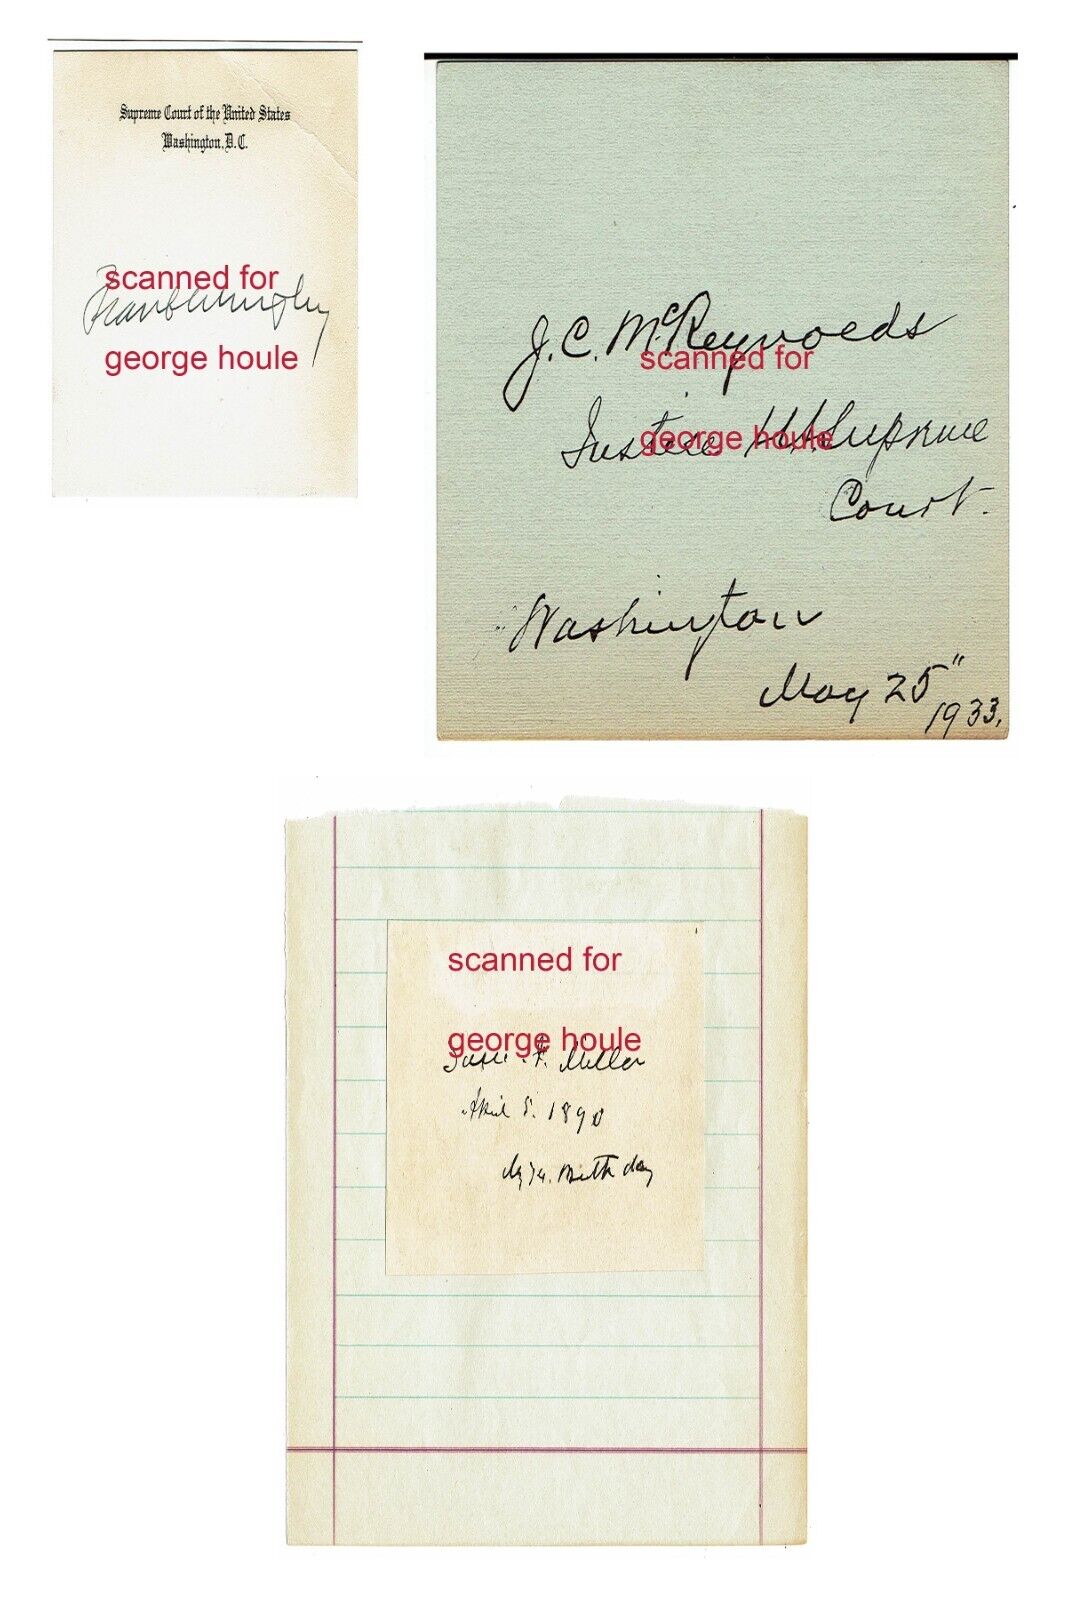 Supreme Court of the United States
Washington, D.C.
scanned for
Frank Murphy
george houle
J. C. McReynolds
scanned for
Justice U.S. Supreme
george houle
Court.
Washington
May 25"
1933.
scanned for
george houle
F. Miller
April 5. 1890
My 74. Birth day